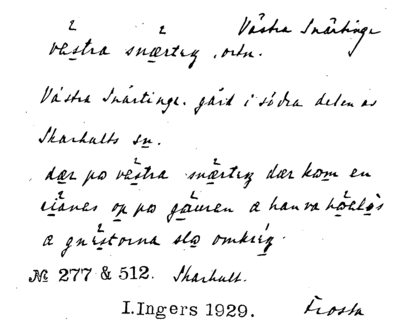 Västra Snärtinge
västra snærteŋ, ortn.
Västra Snärtinge. gård i södra delen av
Skarhults sn.
dær po västra snærteŋ dær kom en
op po gåuren a han va
a gnistorna slo omkriŋ.
№ 277 & 512. Skarhult.
I.Ingers 1929. Frosta